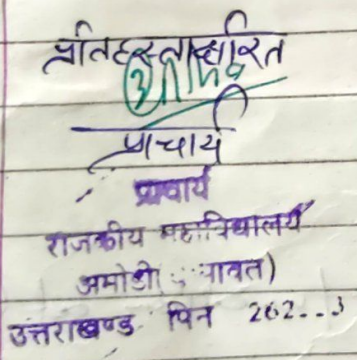 प्रतिहस्ताक्षरित
प्राचार्य
प्राचार्य
राजकीय महाविद्यालय
अमोडी
उत्तराखण्ड पिन